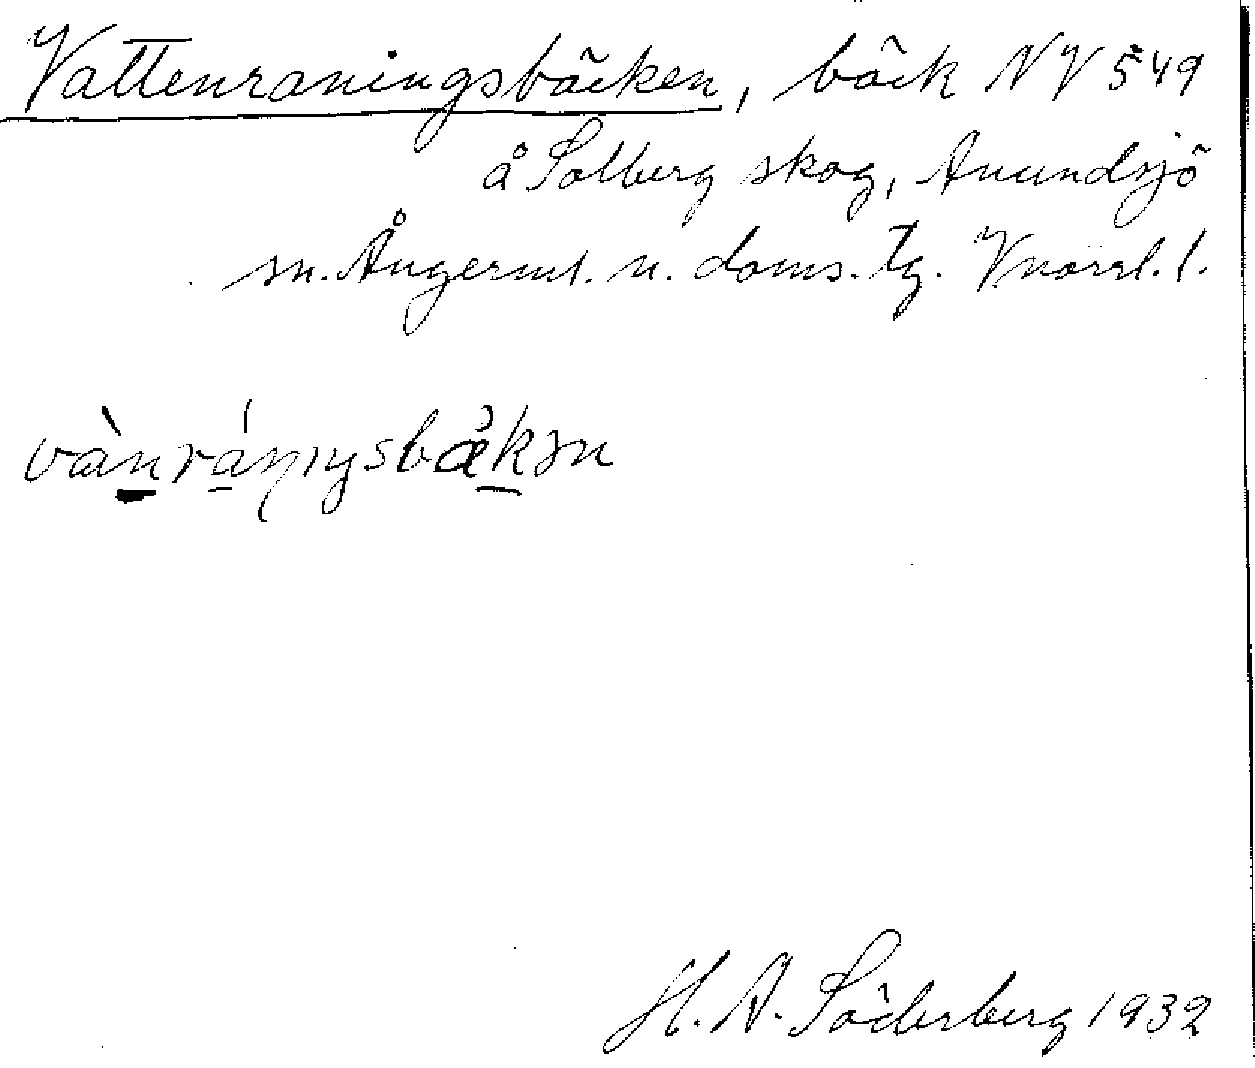 Vattenraningsbäcken, bäck NV 549
å Solberg skog, Anundsjö
sn. Ångerml. n. doms. tg. Vnorrl. l.
vànránıŋsbækən
H. A. Söderberg 1932